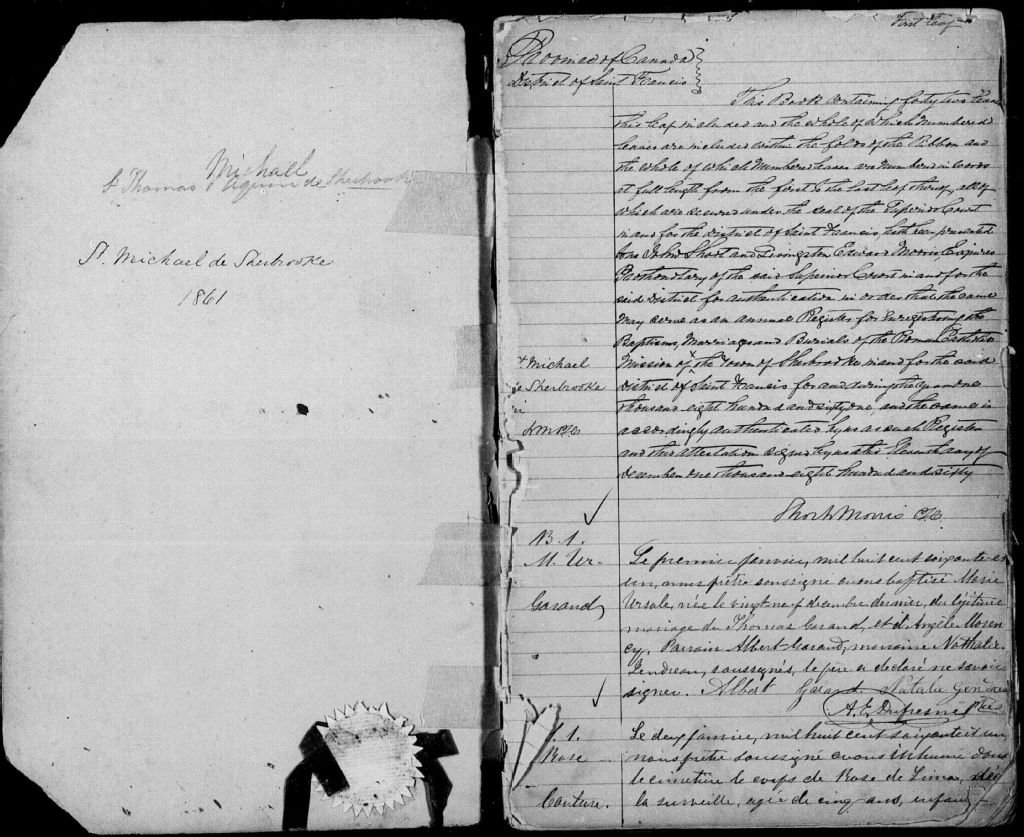 Michael
St Thomas d'Aquin de Sherbrooke
St. Michael de Sherbrooke
1861
First Leaf
Province of Canada
District of Saint Francis
This Book containing forty two leaves
this leaf included and the whole of which numbered
leaves are included within the folds of the Ribbon and
the whole of which Numbered leaves are Numbered in words
at full length from the first to the last leaf thereof, all of
which are secured under the seal of the Superior Court
in and for the District of Saint Francis, hath been presented
to us John Short and Livingston Edward Morris Esquires
Prothonotary of the said Superior Court in and for the
said District for authentication in order that the same
may serve as an annual Register for Enregistering the
Baptisms, Marriages and Burials of the Roman Catholic
Mission of the Town of Sherbrooke in and for the said
District of Saint Francis for and during the year one
thousand eight hundred and sixty one and the same is
accordingly authenticated by us as such Register
and this attestation signed by us this Eleventh day of
December one thousand eight hundred and sixty
t. Michael
e Sherbrooke
Short & Morris
B. 1.
M. Ur-
Garand
Le premier janvier, mil huit cent soixante et
un, nous prêtre soussigné avons baptisé Marie
Ursule, née le vingt neuf décembre dernier, du légitime
mariage de Thomas Garand, et d'Angèle Moren
cy, Parrain Albert Garand, marraine Nathalie
Gendreau, soussignés, le père a déclaré ne savoir
signer. Albert Garand Natalie Gendreau
A. E. Dufresne Ptre
S. 1.
Rose
Couture.
Le deux janvier, mil huit cent soixante et un
nous prêtre soussigné avons inhumé dans
le cimetière le corps de Rose de Lima,
la surveille, agée de cinq ans, enfant